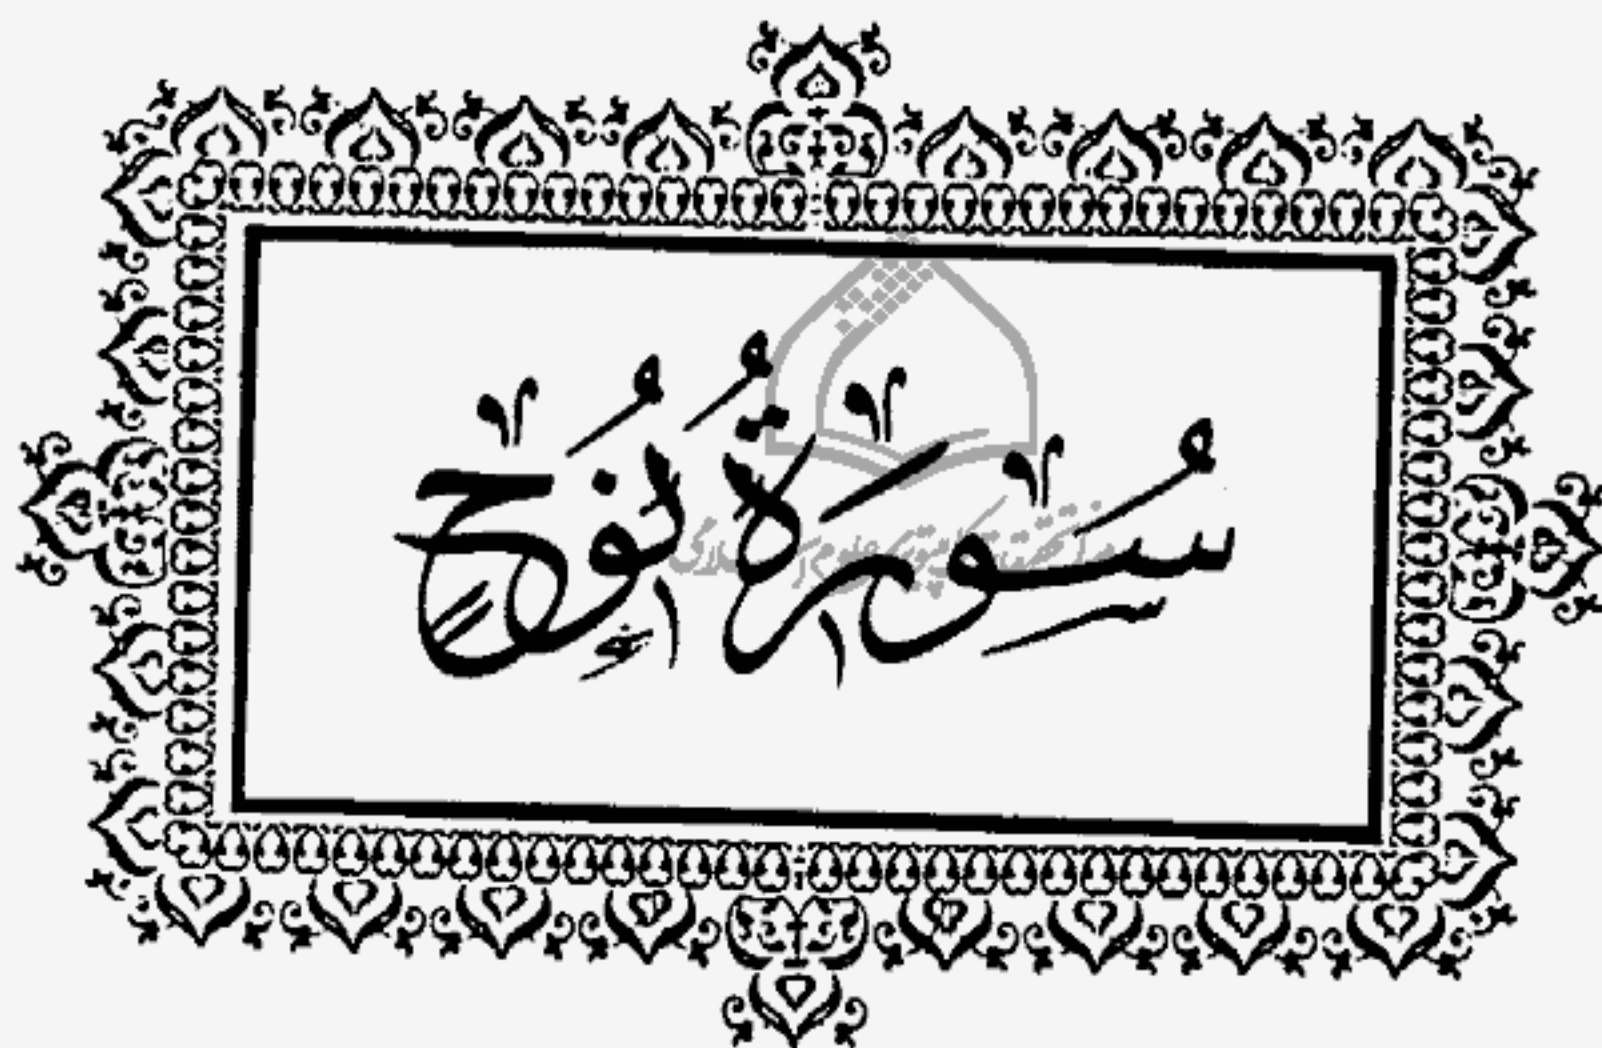 سُورَةُ نُوحٍ
مرکز تحقیقات کامپیوتری علوم اسلامی